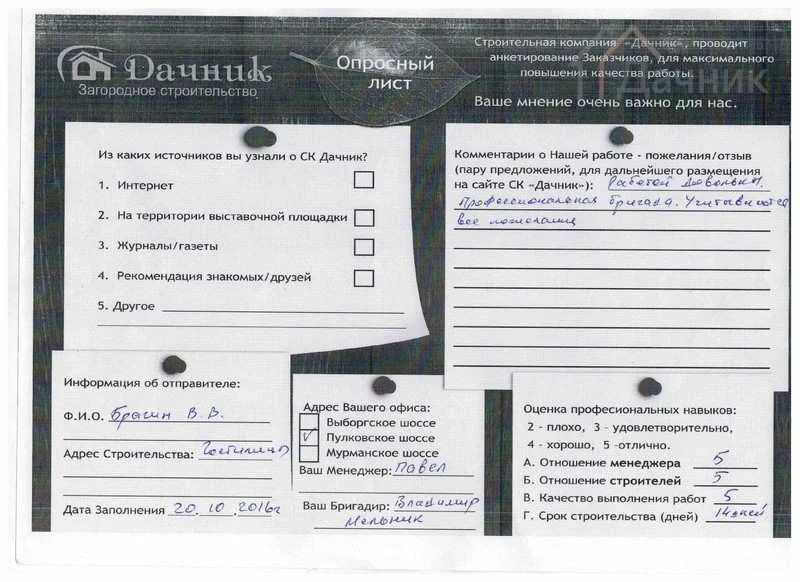 Дачник
Загородное строительство
Опросный
лист
Строительная компания «Дачник», проводит
анкетирование Заказчиков, для максимального
повышения качества работы.
Дачник
Ваше мнение очень важно для нас.
Из каких источников вы узнали о СК Дачник?
1. Интернет
2. На территории выставочной площадки
3. Журналы/газеты
4. Рекомендация знакомых/друзей
5. Другое
Комментарии о Нашей работе - пожелания/отзыв
(пару предложений, для дальнейшего размещения
на сайте СК «Дачник»): Работой довольны.
Профессиональная бригада. Учитываются
все пожелания
Информация об отправителе:
Ф.И.О. Брагин В.В.
Адрес Строительства:
Дата Заполнения 20.10.2016г
Адрес Вашего офиса:
Выборгское шоссе
Пулковское шоссе
Мурманское шоссе
Ваш Менеджер: Павел
Ваш Бригадир: Владимир
Мельник
Оценка професиональных навыков:
2 - плохо, 3 - удовлетворительно,
4 - хорошо, 5 -отлично.
А. Отношение менеджера 5
Б. Отношение строителей 5
В. Качество выполнения работ 5
Г. Срок строительства (дней) 14 дней